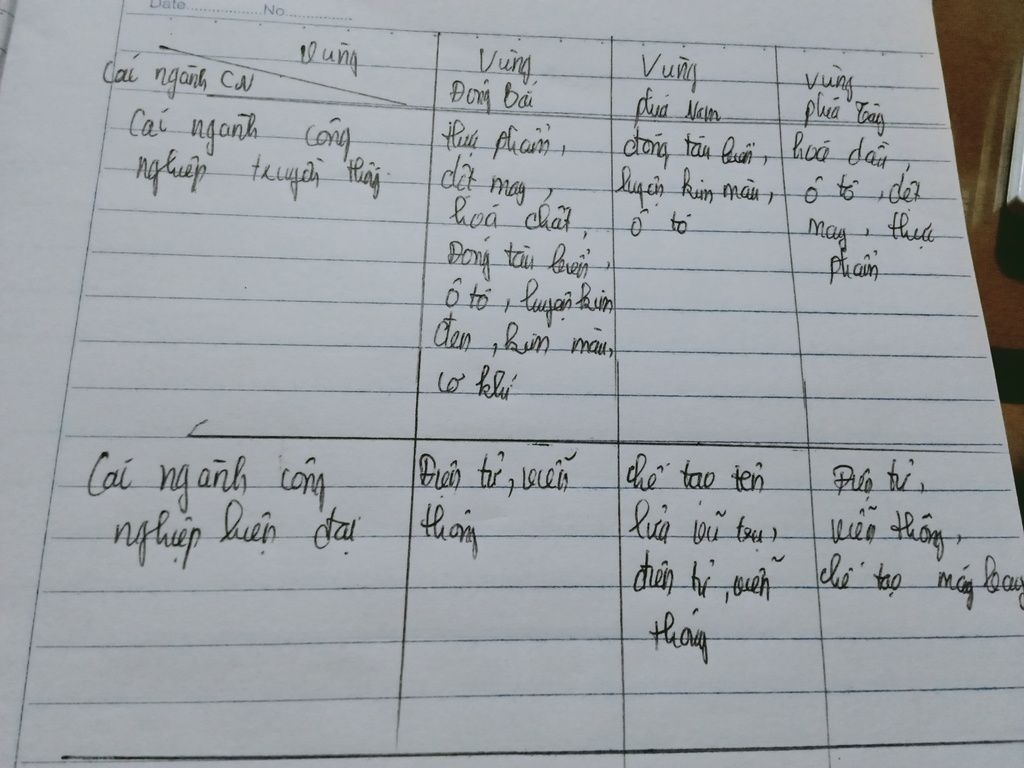 Date No
Vùng
Các ngành CN
Vùng
Đông bắc
Vùng
phía Nam
Vùng
phía Tây
Các ngành công
nghiệp truyền thống
thực phẩm,
dệt may,
hoá chất,
Đóng tàu biển,
ô tô, luyện kim
đen, kim màu,
cơ khí
đóng tàu biển,
luyện kim màu,
ô tô
hoá dầu,
ô tô, dệt
may, thực
phẩm
Các ngành công
nghiệp hiện đại
Điện tử, viễn
thông
chế tạo tên
lửa vũ trụ,
điện tử, viễn
thông
Điện tử,
viễn thông,
chế tạo máy bay